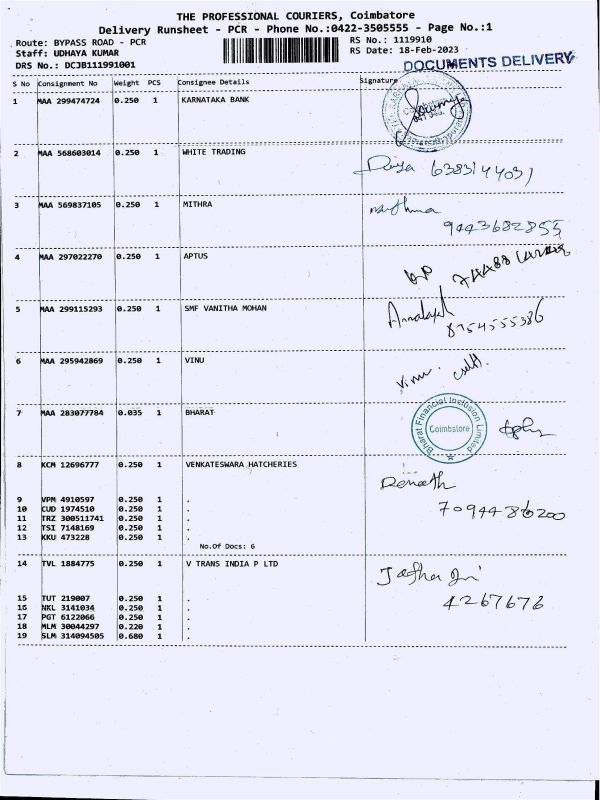 THE PROFESSIONAL COURIERS, Coimbatore
Delivery Runsheet - PCR - Phone No.:0422-3505555 - Page No.:1
Route: BYPASS ROAD - PCR RS No.: 1119910
Staff: UDHAYA KUMAR RS Date: 18-Feb-2023
DRS No.: DCJB111991001 DOCUMENTS DELIVERY
S No Consignment No Weight PCS Consignee Details Signature
1 MAA 299474724 0.250 1 KARNATAKA BANK
2 MAA 568603014 0.250 1 WHITE TRADING
Divya 6383144031
3 MAA 569837105 0.250 1 MITHRA
9443682855
4 MAA 297022270 0.250 1 APTUS
5 MAA 299115293 0.250 1 SMF VANITHA MOHAN
8754555386
6 MAA 295942869 0.250 1 VINU
Vinu
7 MAA 283077784 0.035 1 BHARAT
Bharat Financial Inclusion Limited
Coimbatore
8 KCM 12696777 0.250 1 VENKATESWARA HATCHERIES
7094486200
9 VPM 4910597 0.250 1 .
10 CUD 1974510 0.250 1 .
11 TRZ 300511741 0.250 1 .
12 TSI 7148169 0.250 1 .
13 KKU 473228 0.250 1 .
No.Of Docs: 6
14 TVL 1884775 0.250 1 V TRANS INDIA P LTD
4267676
15 TUT 219007 0.250 1 .
16 NKL 3141034 0.250 1 .
17 PGT 6122066 0.250 1 .
18 MLM 30044297 0.220 1 .
19 SLM 314094505 0.680 1 .